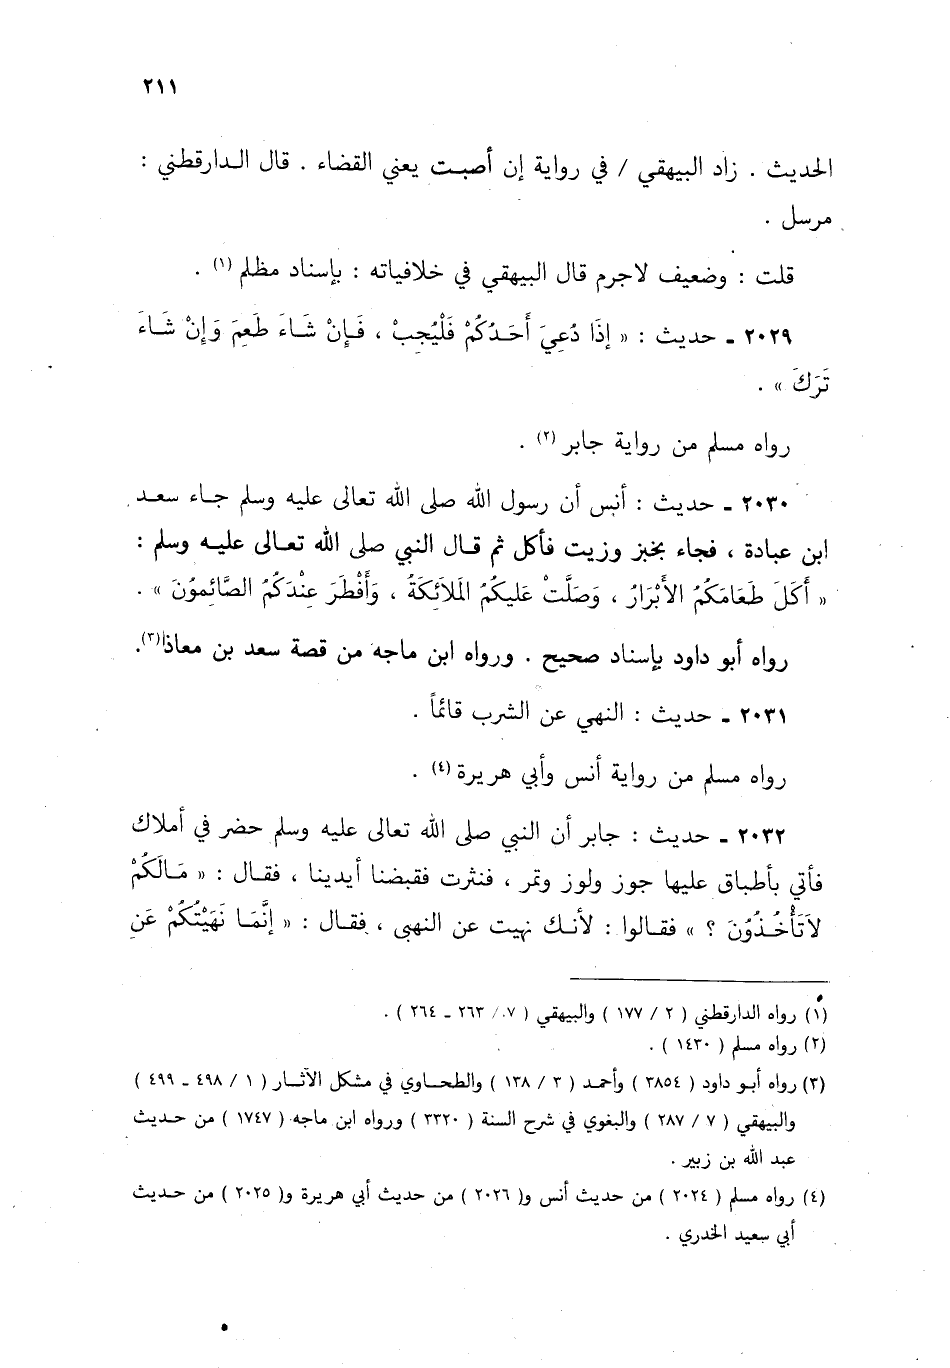 ٢١١
الحديث . زاد البيهقي / في رواية إن أصبت يعني القضاء . قال الدارقطني :
مرسل .
قلت : وضعيف لاجرم قال البيهقي في خلافياته : بإسناد مظلم (١) .
٢٠٢٩ ـ حديث : « إِذَا دُعِيَ أَحَدُكُمْ فَلْيُجِبْ ، فَإِنْ شَاءَ طَعِمَ وَإِنْ شَاءَ
تَرَكَ » .
رواه مسلم من رواية جابر (٢) .
٢٠٣٠ ـ حديث : أنس أن رسول الله صلى الله تعالى عليه وسلم جاء سعد
ابن عبادة ، فجاء بخبز وزيت فأكل ثم قال النبي صلى الله تعالى عليه وسلم :
« أَكَلَ طَعَامَكُمُ الأَبْرَارُ ، وَصَلَّتْ عَلَيكُمُ المَلَائِكَةُ ، وَأَفْطَرَ عِنْدَكُمُ الصَّائِمُونَ » .
رواه أبو داود بإسناد صحيح . ورواه ابن ماجه من قصة سعد بن معاذا(٣).
٢٠٣١ ـ حديث : النهي عن الشرب قائماً .
رواه مسلم من رواية أنس وأبي هريرة (٤) .
٢٠٣٢ ـ حديث : جابر أن النبي صلى الله تعالى عليه وسلم حضر في أملاك
فأتي بأطباق عليها جوز ولوز وتمر ، فنثرت فقبضنا أيدينا ، فقال : « مَالَكُمْ
لَاتَأْخُذُوْنَ ؟ » فقالوا : لأنك نهيت عن النهبى ، فقال : « إِنَّمَا نَهَيْتُكُمْ عَنِ
(١) رواه الدارقطني ( ٢ / ١٧٧ ) والبيهقي ( ٧ / ٢٦٣ ـ ٢٦٤ ) .
(٢) رواه مسلم ( ١٤٣٠ ) .
(٣) رواه أبو داود ( ٣٨٥٤ ) وأحمد ( ٣ / ١٣٨ ) والطحاوي في مشكل الآثار ( ١ / ٤٩٨ ـ ٤٩٩ )
والبيهقي ( ٧ / ٢٨٧ ) والبغوي في شرح السنة ( ٣٣٢٠ ) ورواه ابن ماجه ( ١٧٤٧ ) من حديث
عبد الله بن زبير .
(٤) رواه مسلم ( ٢٠٢٤ ) من حديث أنس و( ٢٠٢٦ ) من حديث أبي هريرة و( ٢٠٢٥ ) من حديث
أبي سعيد الخدري .